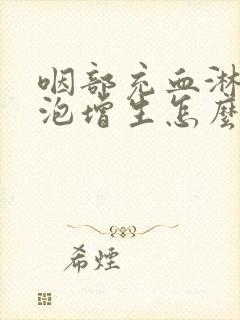 咽部充血淋
泡增生怎麼
希煙